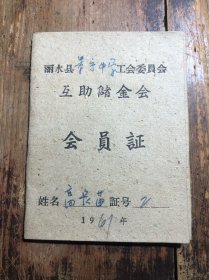 丽水县景宁中学工会委員会
互助儲金会
会員証
姓名 証号 2
1961年